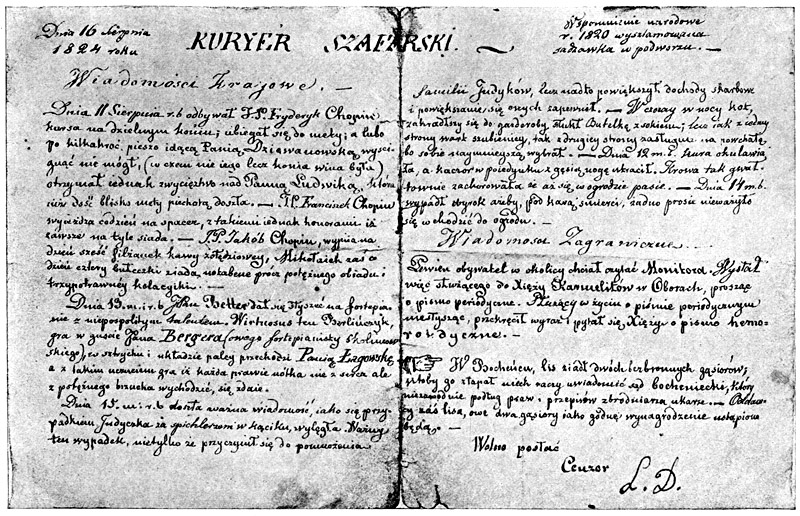 Dnia 16 Sierpnia
1824 roku
KURYER SZAFARSKI. —
Wspomnienie narodowe
r. 1820 wyszlamowano
sadzawkę w podworzu. —
Wiadomości Krajowe. —
Dnia 11 Sierpnia r. b odbywał J. P. Fryderyk Chopin
kursa na dzielnym koniu; ubiegał się do mety; a lubo
po kilkakroć, pieszo idącą Panią Dziewanowską wyści-
gnąć nie mógł, (w czem nie jego lecz konia wina była)
otrzymał jednak zwycięztwo nad Panną Ludwiką, która
już dość blisko mety piechotą doszła. — J. P. Franciszek Chopin
wyjeżdża codzień na spacer, z takiemi jednak honorami iż
zawsze na tyle siada. — J. P. Jakób Chopin, wypija na
dzień sześć filiżanek kawy żołędziowej, Mikołajek zaś co
dzień cztery bułeczki ziada, notabene prócz potężnego obiadu i
trzypotrawnej kolacyjki. —
Dnia 13 m. i r. b Better dał się słyszeć na fortepia-
nie z niepospolitym talentem. Wirtuosus ten Berlińczyk,
gra w guście Pana Bergera (owego fortepianisty Skolimow-
skiego), w sztrychu i układzie palcy przechodzi Panią Łagowskę,
a z takim uczuciem gra iż każda prawie nótka nie z serca ale
z potężnego brzucha wychodzić, się zdaje.
Dnia 15. m. i r. b doszła ważna wiadomość, jako się przy-
padkiem Indyczka za spichlerzem w kąciku, wylęgła. Ważny
ten wypadek, nietylko że przyczynił się do pomnożenia
familii Indyków, lecz nadto powiększył dochody skarbowe
i powiększanie się onych zapewnił. — Wczoray w nocy kot,
zakradłszy się do gardoroby, stłukł Butelkę z sokiem; lecz jak z jedney
strony wart szubienicy, tak z drugiey strony zasługuje na pochwałę
bo sobie naymnieyszą wybrał. — Dnia 12 m. i. kura okulawia-
ła, a kaczor w pojedynku z gęsią nogę utracił. Krowa tak gwał-
townie zachorowała że aż się w ogrodzie pasie. — Dnia 14 m. b.
wypadł wyrok ażeby, pod karą śmierci, żadne prosie nieważyło
się wchodzić do ogrodu. —
Wiadomości Zagraniczne.
Pewien obywatel w okolicy chciał czytać Monitora. Wysłał
więc służącego do Xięży Karmelitów w Oborach, prosząc
o pismo periodyczne. Służący w życiu o piśmie periodycznym
niesłysząc, przekręcił wyraz i pytał się Xięży o pismo hemo-
roidyczne. —
W Bocheńcu, lis ziadł dwóch bezbronnych gąsiorów;
ktoby go złapał niech raczy uwiadomić sąd bocheniecki, który
niezawodnie podług praw i przepisów zbrodniarza ukarze. — Oddaw-
cy zaś lisa, owe dwa gąsiory jako godne wynagrodzenie ustąpione
będą. —
Wolno posłać
Cenzor
L. D.